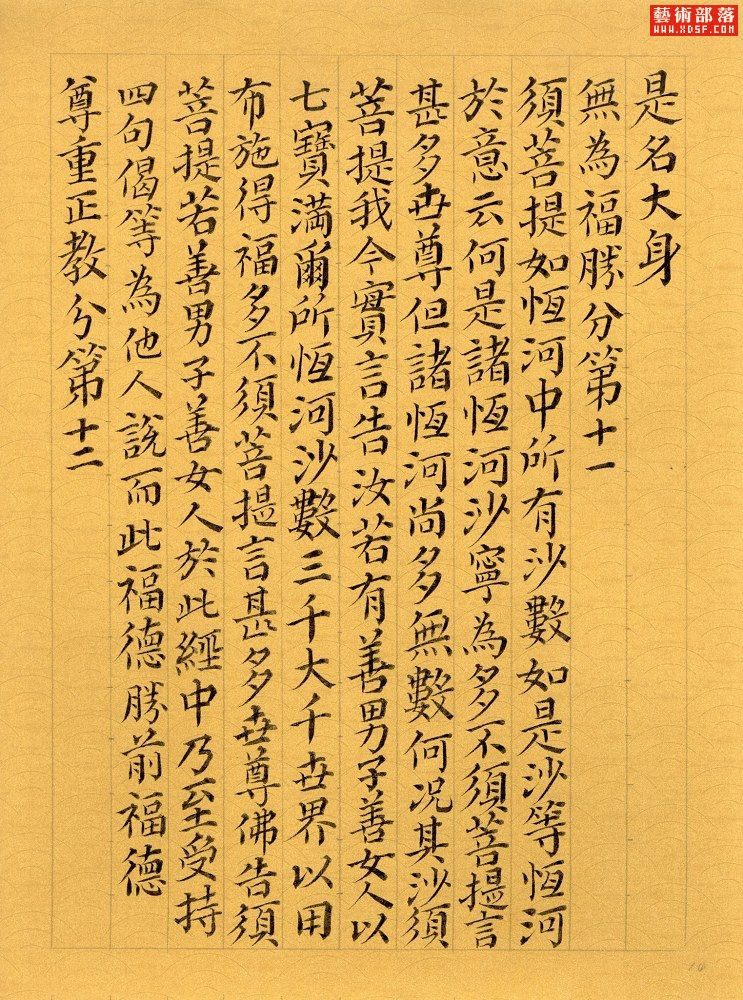 藝術部落
www.XDSF.com
是名大身
無為福勝分第十一
須菩提如恆河中所有沙數如是沙等恆河
於意云何是諸恆河沙寧為多不須菩提言
甚多世尊但諸恆河尚多無數何况其沙須
菩提我今實言告汝若有善男子善女人以
七寶滿爾所恆河沙數三千大千世界以用
布施得福多不須菩提言甚多世尊佛告須
菩提若善男子善女人於此經中乃至受持
四句偈等為他人說而此福德勝前福德
尊重正教分第十二